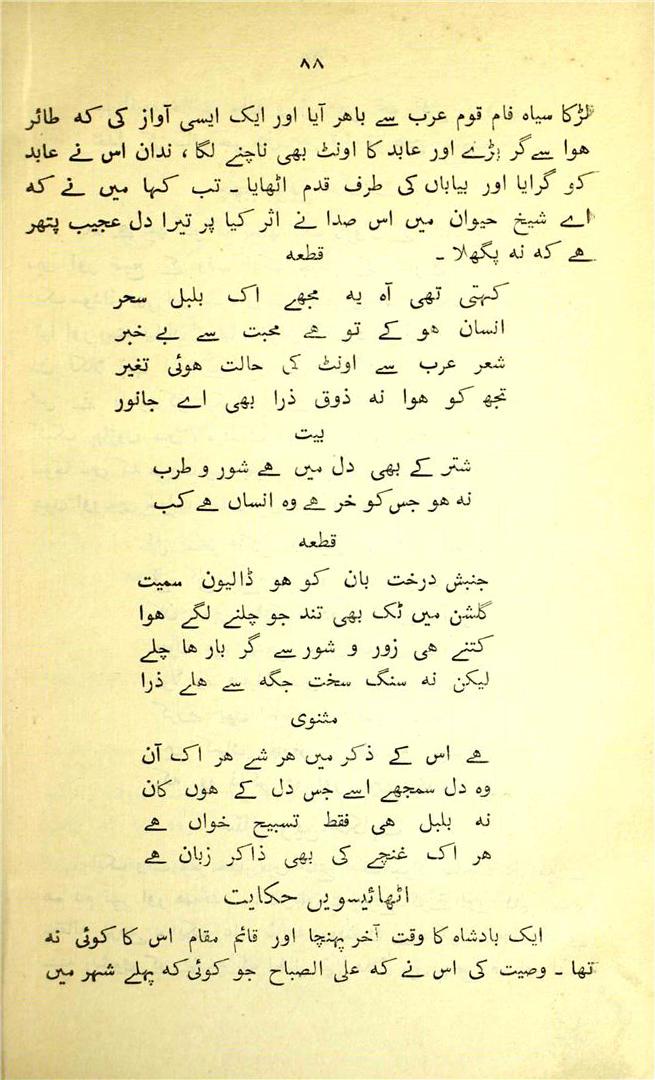 ۸۸
لڑکا سیاہ فام قوم عرب سے باہر آیا اور ایک ایسی آواز کی کہ طائر
ہوا سے گر پڑے اور عابد کا اونٹ بھی ناچنے لگا ، ندان اس نے عابد
کو گرایا اور بیاباں کی طرف قدم اٹھایا ۔ تب کہا میں نے کہ
اے شیخ حیوان میں اس صدا نے اثر کیا پر تیرا دل عجیب پتھر
ہے کہ نہ پگھلا ۔ قطعہ
کہتی تھی آہ یہ مجھے اک بلبل سحر
انسان ہو کے تو ہے محبت سے بے خبر
شعر عرب سے اونٹ کی حالت ہوئی تغیر
تجھ کو ہوا نہ ذوق ذرا بھی اے جانور
بیت
شتر کے بھی دل میں ہے شور و طرب
نہ ہو جس کو خر ہے وہ انساں ہے کب
قطعہ
جنبش درخت بان کو ہو ڈالیوں سمیت
گلشن میں ٹک بھی تند جو چلنے لگے ہوا
کتنے ہی زور و شور سے گر بارہا چلے
لیکن نہ سنگ سخت جگہ سے ہلے ذرا
مثنوی
ہے اس کے ذکر میں ہر شے ہر اک آن
وہ دل سمجھے اسے جس دل کے ہوں کان
نہ بلبل ہی فقط تسبیح خواں ہے
ہر اک غنچے کی بھی ذاکر زبان ہے
اٹھائیسویں حکایت
ایک بادشاہ کا وقت آخر پہنچا اور قائم مقام اس کا کوئی نہ
تھا ۔ وصیت کی اس نے کہ علی الصباح جو کوئی کہ پہلے شہر میں